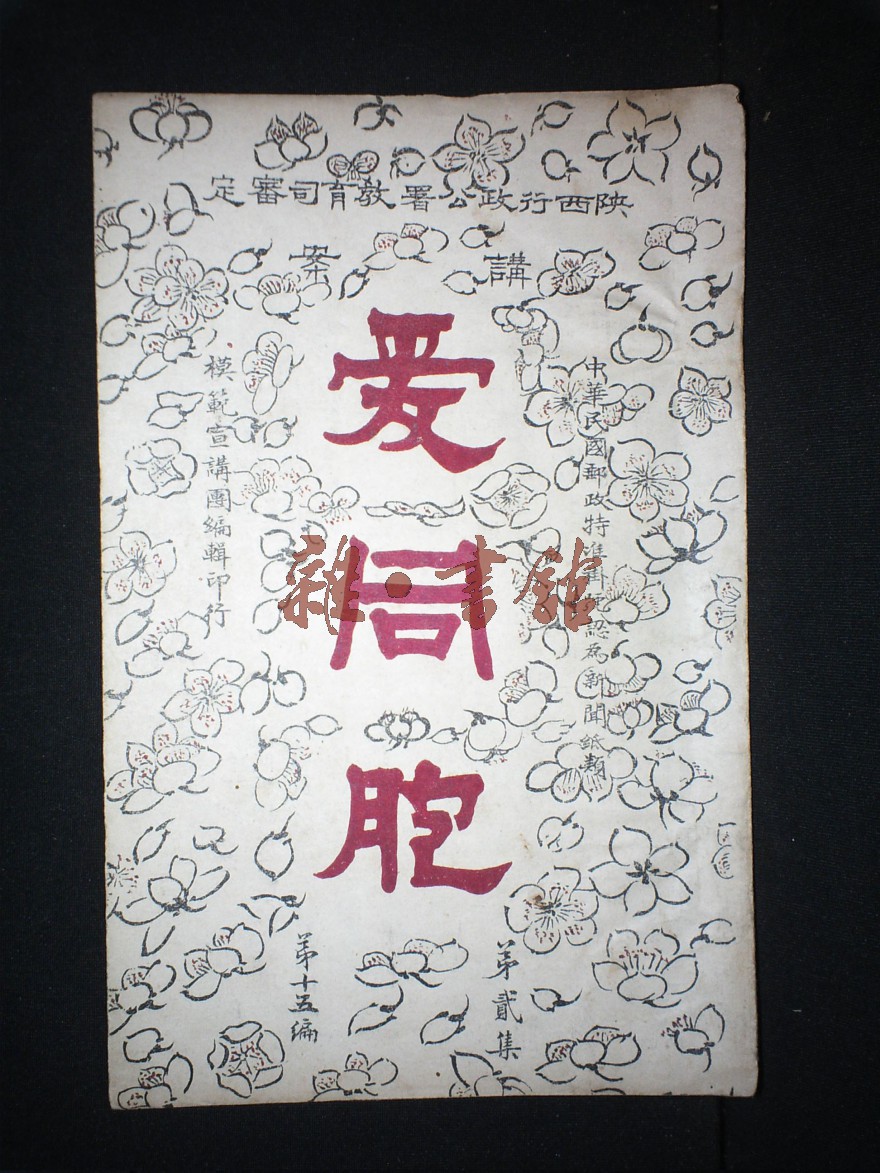 陝西行政公署教育司審定
講案
中華民國郵政特準掛號認爲新聞紙類
爱同胞
模範宣講團編輯印行
第貳集
第十五編
雜·書館